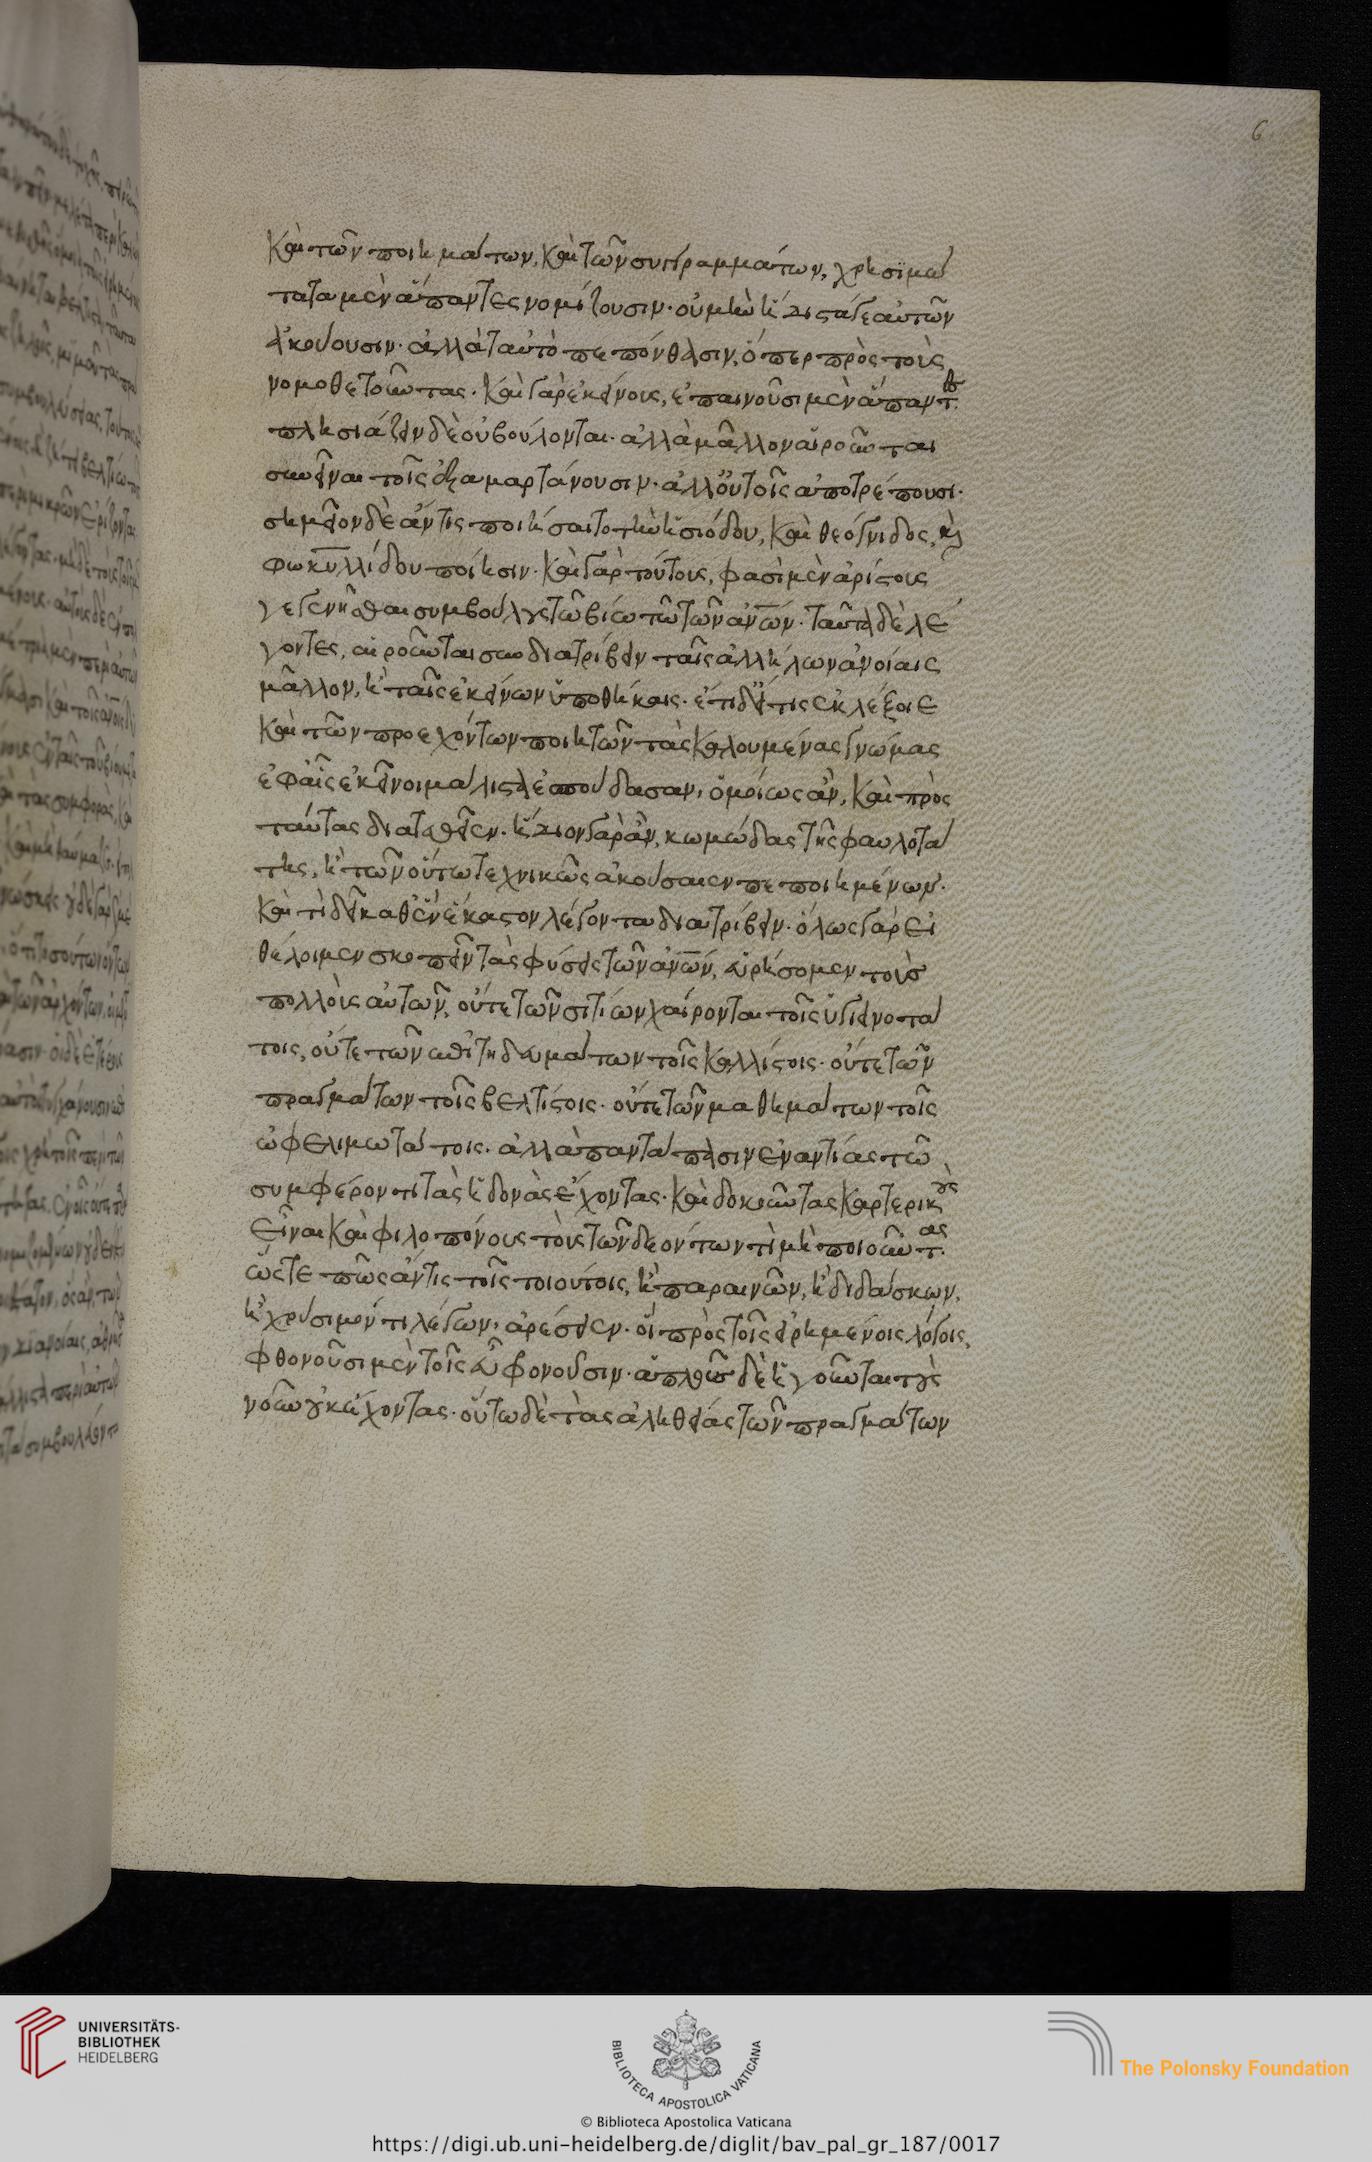 6
καὶ τῶν ποιημάτων, καὶ τῶν συγγραμμάτων, χρησιμώ
τατα μὲν ἅπαντες νομίζουσιν· οὐ μὴν ἥδιστά γε αὐτῶν
ἀκούουσιν· ἀλλὰ ταυτὸ πεπόνθασιν, ὅπερ πρὸς τοὺς
νομοθετοῦντας. καὶ γὰρ ἐκείνους, ἐπαινοῦσι μὲν ἅπαντ(ες)
πλησιάζειν δὲ οὐ βούλονται. ἀλλὰ μᾶλλον αἱροῦνται
συνεῖναι τοῖς ἐξαμαρτάνουσιν· ἀλλ' οὐ τοῖς ἀποτρέπουσι·
σημεῖον δὲ ἄν τις ποιήσαιτο τὴν ἡσιόδου, καὶ θεόγνιδος, κ(αὶ)
φωκυλλίδου ποίησιν· καὶ γὰρ τούτους, φασὶ μὲν ἀρίστους
γεγενῆσθαι συμβούλους τῶ βίω τῶ τῶν ἀν(θρώπ)ων. ταῦτα δὲ λέ
γοντες, αἱροῦνται συνδιατρίβειν ταῖς ἀλλήλων ἀνοίαις
μᾶλλον, ἢ ταῖς ἐκείνων ὑποθήκαις. ἔτι δ' εἴ τις ἐκλέξοιε
καὶ τῶν προεχόντων ποιητῶν τὰς καλουμένας γνώμας
ἐφ' αἷς ἐκεῖνοι μάλιστα ἐσπούδασαν, ὁμοίως ἂν, καὶ πρὸς
ταύτας διατεθεῖεν. ἥδιον γὰρ ἂν, κωμωδίας τῆς φαυλοτά
της, ἢ τῶν οὕτω τεχνικῶς ἀκούσαιεν πεποιημένων.
καὶ τί δεῖ καθ' ἓν ἕκαστον λέγοντα διατρίβειν. ὅλως γὰρ εἰ
θέλοιμεν σκοπεῖν τὰς φύσεις τῶν ἀν(θρώπ)ων, εὑρήσομεν τοὺς
πολλοὺς αὐτῶν, οὔτε τῶν σιτίων χαίροντας τοῖς ὑγιεινοτά
τοις, οὔτε τῶν ἐπιτηδευμάτων τοῖς καλλίστοις. οὔτε τῶν
πραγμάτων τοῖς βελτίστοις. οὔτε τῶν μαθημάτων τοῖς
ὠφελιμωτάτοις. ἀλλὰ παντάπασιν ἐναντίας τῶ
συμφέροντι τὰς ἡδονὰς ἔχοντας. καὶ δοκοῦντας καρτερικοὺς
εἶναι καὶ φιλοπόνους τοὺς τῶν δεόντων τὶ μὴ ποιοῦντας.
ὥστε πῶς ἄν τις τοῖς τοιούτοις, ἢ παραινῶν, ἢ διδάσκων,
ἢ χρήσιμόν τι λέγων, ἀρέσειεν. οἳ πρὸς τοῖς εἰρημένοις λόγοις,
φθονοῦσι μὲν τοῖς εὖ φρονοῦσιν. ἁπλοῦς δὲ ἡγοῦνται τοὺς
νοῦν οὐκ ἔχοντας. οὕτω δὲ τὰς ἀληθείας τῶν πραγμάτων
UNIVERSITÄTS-
BIBLIOTHEK
HEIDELBERG
BIBLIOTECA APOSTOLICA VATICANA
The Polonsky Foundation
© Biblioteca Apostolica Vaticana
https://digi.ub.uni-heidelberg.de/diglit/bav_pal_gr_187/0017